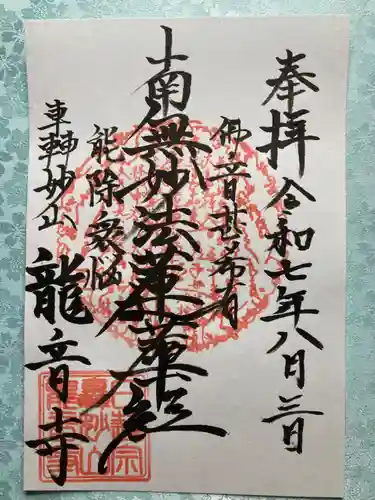 奉拝 令和七年八月三日
佛音甚希有
南無妙法蓮華経
能除衆悩
車轉妙山
龍音寺